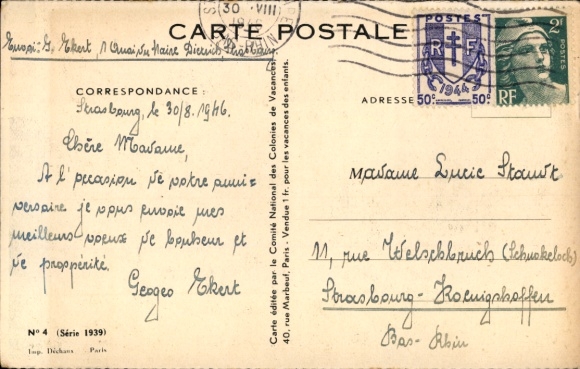 CARTE POSTALE
30 VIII
Envoi: G. Ekert 1 Quai du Maire Dietrich, Strasbourg
CORRESPONDANCE:
Strasbourg, le 30/8. 1946.
Chère Madame,
A l'occasion de votre anni=
versaire je vous envoie mes
meilleurs voeux de bonheur et
de prospérité.
Georges Ekert
N° 4 (Série 1939)
Imp. Déchaux Paris
Carte éditée par le Comité National des Colonies de Vacances
40, rue Marbeuf, Paris - Vendue 1 fr. pour les vacances des enfants.
POSTES
R F
50c 1944 50c
2F
POSTES
RF
ADRESSE
Madame Lucie Staudt
11, rue Welschbruch (Schnokeloch)
Strasbourg-Koenigshoffen
Bas-Rhin